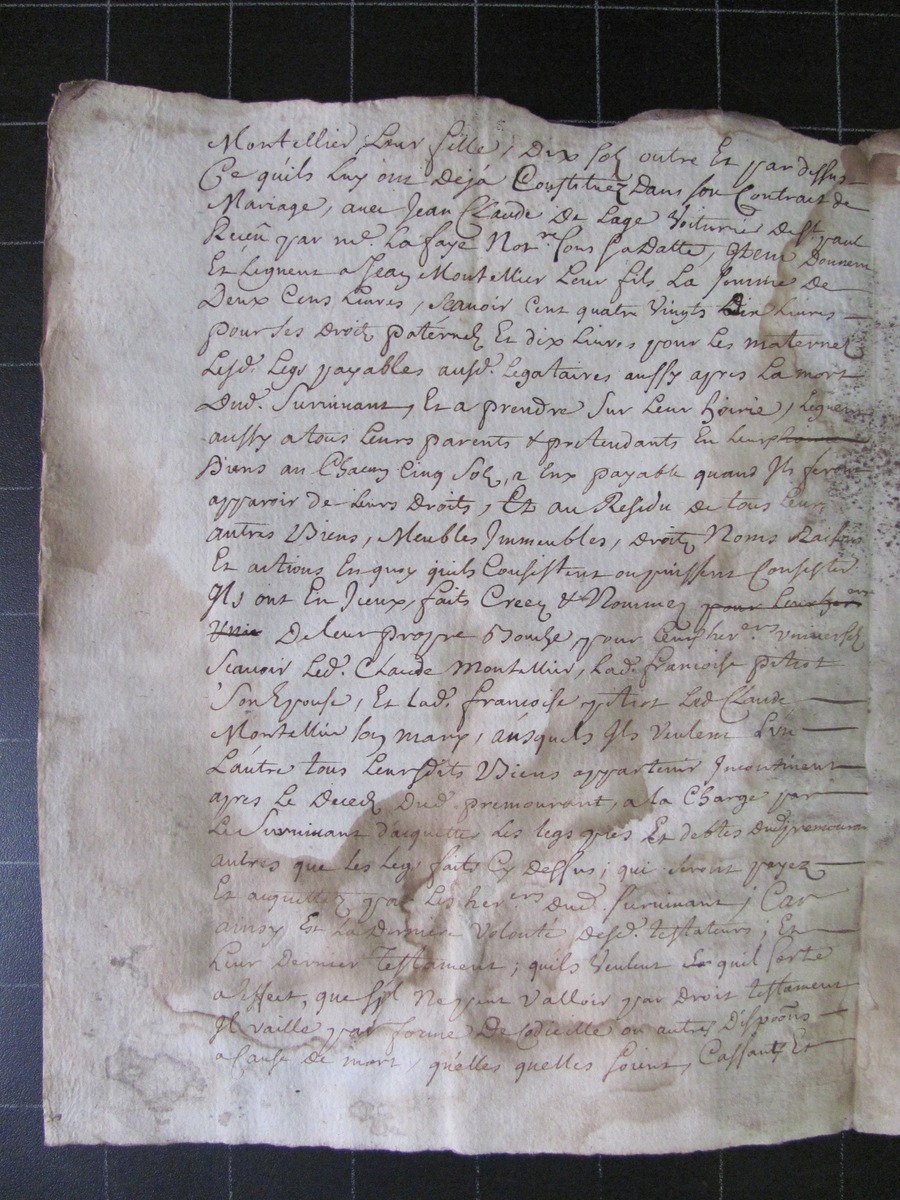 Montellier Leur fille, Dix solz outre Et par dessus
Ce quils Luy ont Déjà Constituéz Dans son Contrait de
Mariage, avec Jean Claude De Lage Voiturier de St paul
Receu par me. Lafaye Notre. sous sa Datte, Item Donnent
Et Leguent a Jean Montellier Leur fils La somme De
Deux Cens Livres, scavoir Cent quatre Vingts Dix Livres
pour ses droitz paternelz Et dix Livres pour Les maternelz
Lesd. Legs payables ausd. Legataires aussy apres La mort
Dud. Survivant, Et a prendre sur Leur hoirie, Leguent
aussy a tous Leurs parents & pretendants En leurs
Biens au Chacun Cinq Solz, a Eux payable quand Ils feront
apparoir de Leurs Droits, Et au Residu de tous Leurs
autres Biens, Meubles Immeubles, droitz Noms Raisons
Et actions En quoy quils Consistent ou puissent Consister
Ils ont En Iceux, faits Creez & Nommez pour Leurs hers
Vni De leur propre Bouche, pour leurs hers. universelz
Scavoir Led. Claude Montellier, Lad. francoise petiot
Son Epouse, Et Lad. francoise petiot Led Claude
Montellier son mary, ausquels Ils Veulent L'vn
L'autre tous Leursdits Biens appartenir Incontinent
apres Le Decedz Dud. premourant, a la Charge par
Le Survivant d'acquitter Les legs pies Et debtes Dud premourant
autres que Les Legs faits Cy Dessus; qui seront payez
Et acquittez par Les hers Dud. Survivant, Car
ainsy Est La Derniere Volonté Desd. testateurs; Et
Leur Dernier Testament; quils Veulent quil sorte
a Effect, que s'il Ne peut Valloir par Droit testament
Il vaille par forme De Codicille ou autres Disposōns
a Cause de mort, quelles quelles soient, Cassantz Et